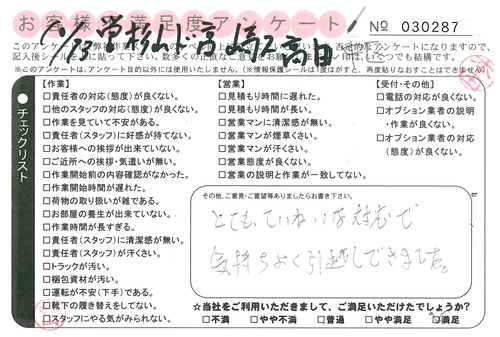 お客様満足度アンケート
№ 030287
※このアンケートは、アンケート目的以外には使用いたしません。(※情報保護シールは1度はがすと、再度貼りなおすことはできません)
チェックリスト
【作業】
□責任者の対応(態度)が良くない。
□他のスタッフの対応(態度)が良くない。
□作業を見ていて不安がある。
□責任者(スタッフ)に好感が持てない。
□お客様への挨拶が出来ていない。
□ご近所への挨拶・気遣いが無い。
□作業開始前の内容確認がなかった。
□作業開始時間が遅れた。
□荷物の取り扱いが雑である。
□お部屋の養生が出来ていない。
□作業時間が長すぎる。
□責任者(スタッフ)に清潔感が無い。
□責任者(スタッフ)が汗くさい。
□トラックが汚い。
□梱包資材が汚い。
□運転が不安(下手)である。
□靴下の履き替えをしてない。
□スタッフにやる気がみられない。
【営業】
□見積もり時間に遅れた。
□見積もり時間が長い。
□営業マンに清潔感が無い。
□営業マンが煙草くさい。
□営業マンが汗くさい。
□営業態度が良くない。
□営業の説明と作業が一致してない。
【受付・その他】
□電話の対応が良くない。
□オプション業者の説明
・作業が良くない。
□オプション業者の対応
(態度)が良くない。
その他、ご意見・ご要望等ありましたらお書き下さい。
とてもていねいな対応で
気持ちよく引越しできました。
☆当社をご利用いただきまして、ご満足いただけたでしょうか?
□不満 □やや不満 □普通 □やや満足 ☑満足